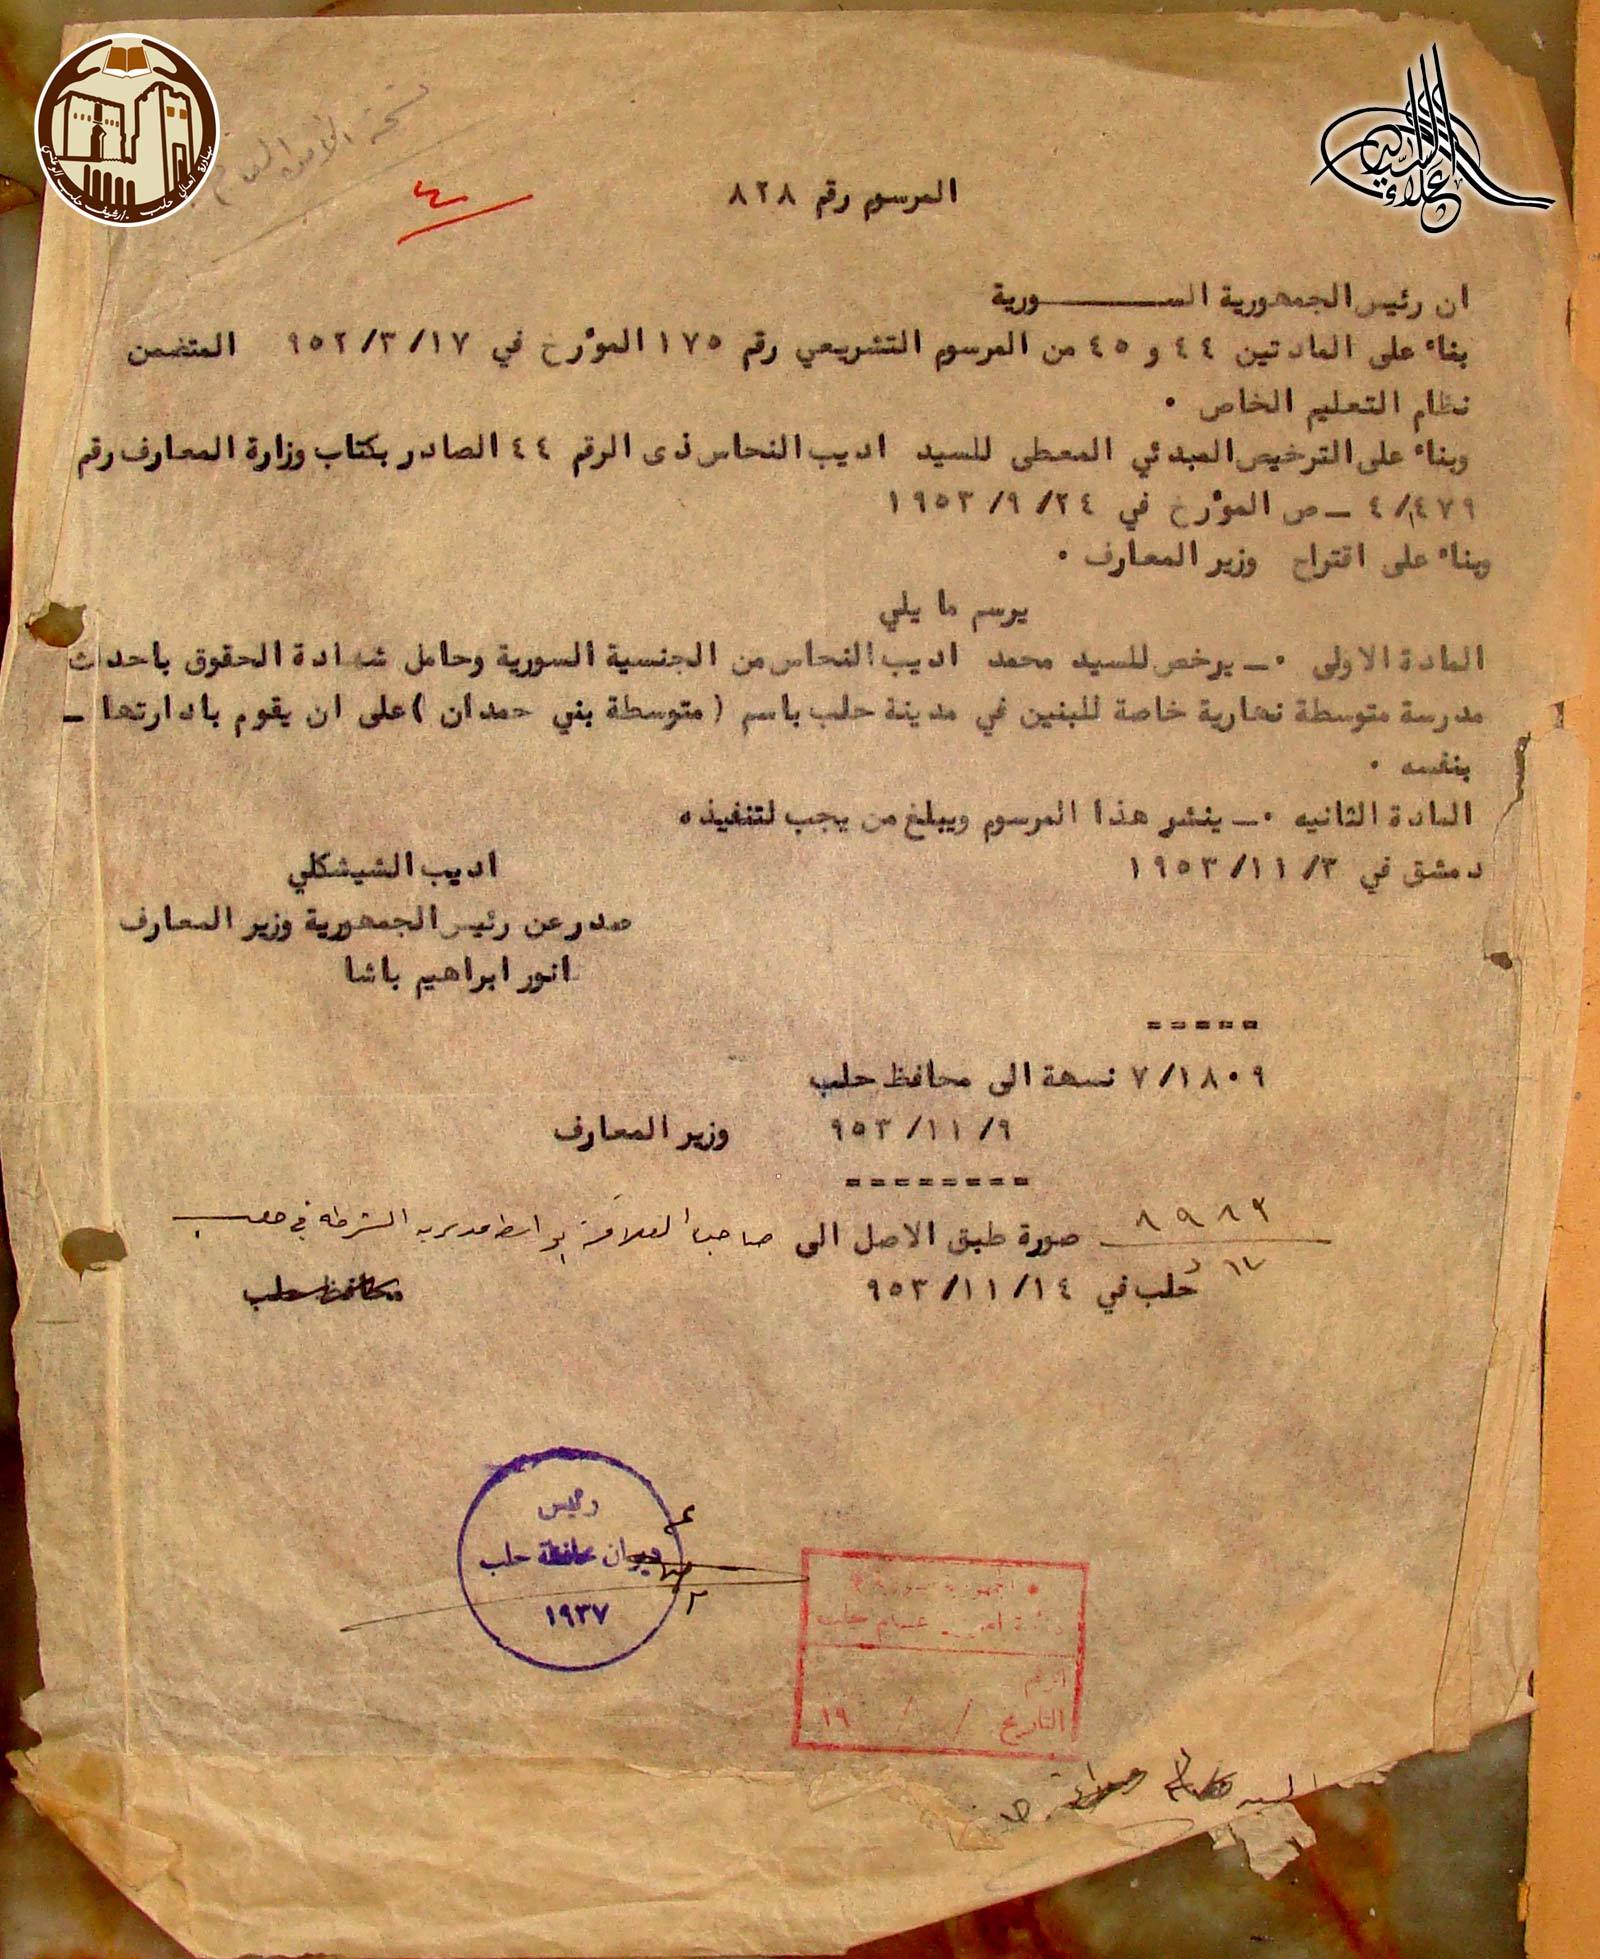 المرسوم رقم ٨٢٨
ان رئيس الجمهورية الســـــورية
بناء على المادتين ٤٤ و ٤٥ من المرسوم التشريعي رقم ١٧٥ المؤرخ في ٩٥٢/٣/١٧ المتضمن
نظام التعليم الخاص ٠
وبناء على الترخيص المبدئي المعطى للسيد اديب النحاس ذى الرقم ٤٤ الصادر بكتاب وزارة المعارف رقم
٤/٤٧٩ ــ ص المؤرخ في ١٩٥٣/٩/٢٤
وبناء على اقتراح وزير المعارف ٠
يرسم ما يلي
المادة الاولى ٠ــ يرخص للسيد محمد اديب النحاس من الجنسية السورية وحامل شهادة الحقوق باحداث
مدرسة متوسطة نهارية خاصة للبنين في مدينة حلب باسم ( متوسطة بني حمدان ) على ان يقوم بادارتها ــ
بنفسه ٠
المادة الثانيه ٠ــ ينشر هذا المرسوم ويبلغ من يجب لتنفيذه
دمشق في ١٩٥٣/١١/٣
اديب الشيشكلي
صدر عن رئيس الجمهورية وزير المعارف
انور ابراهيم باشا
٧/١٨٠٩ نسهة الى محافظ حلب
٩٥٣/١١/٩ وزير المعارف
٨٩٨٣ صورة طبق الاصل الى صاحب العلاقة بواسطة مديرية الشرطة في حلب
حلب في ٩٥٣/١١/١٤ محافظ حلب
رئيس
ديوان محافظة حلب
١٩٣٧
الرقم
التاريخ / / ١٩